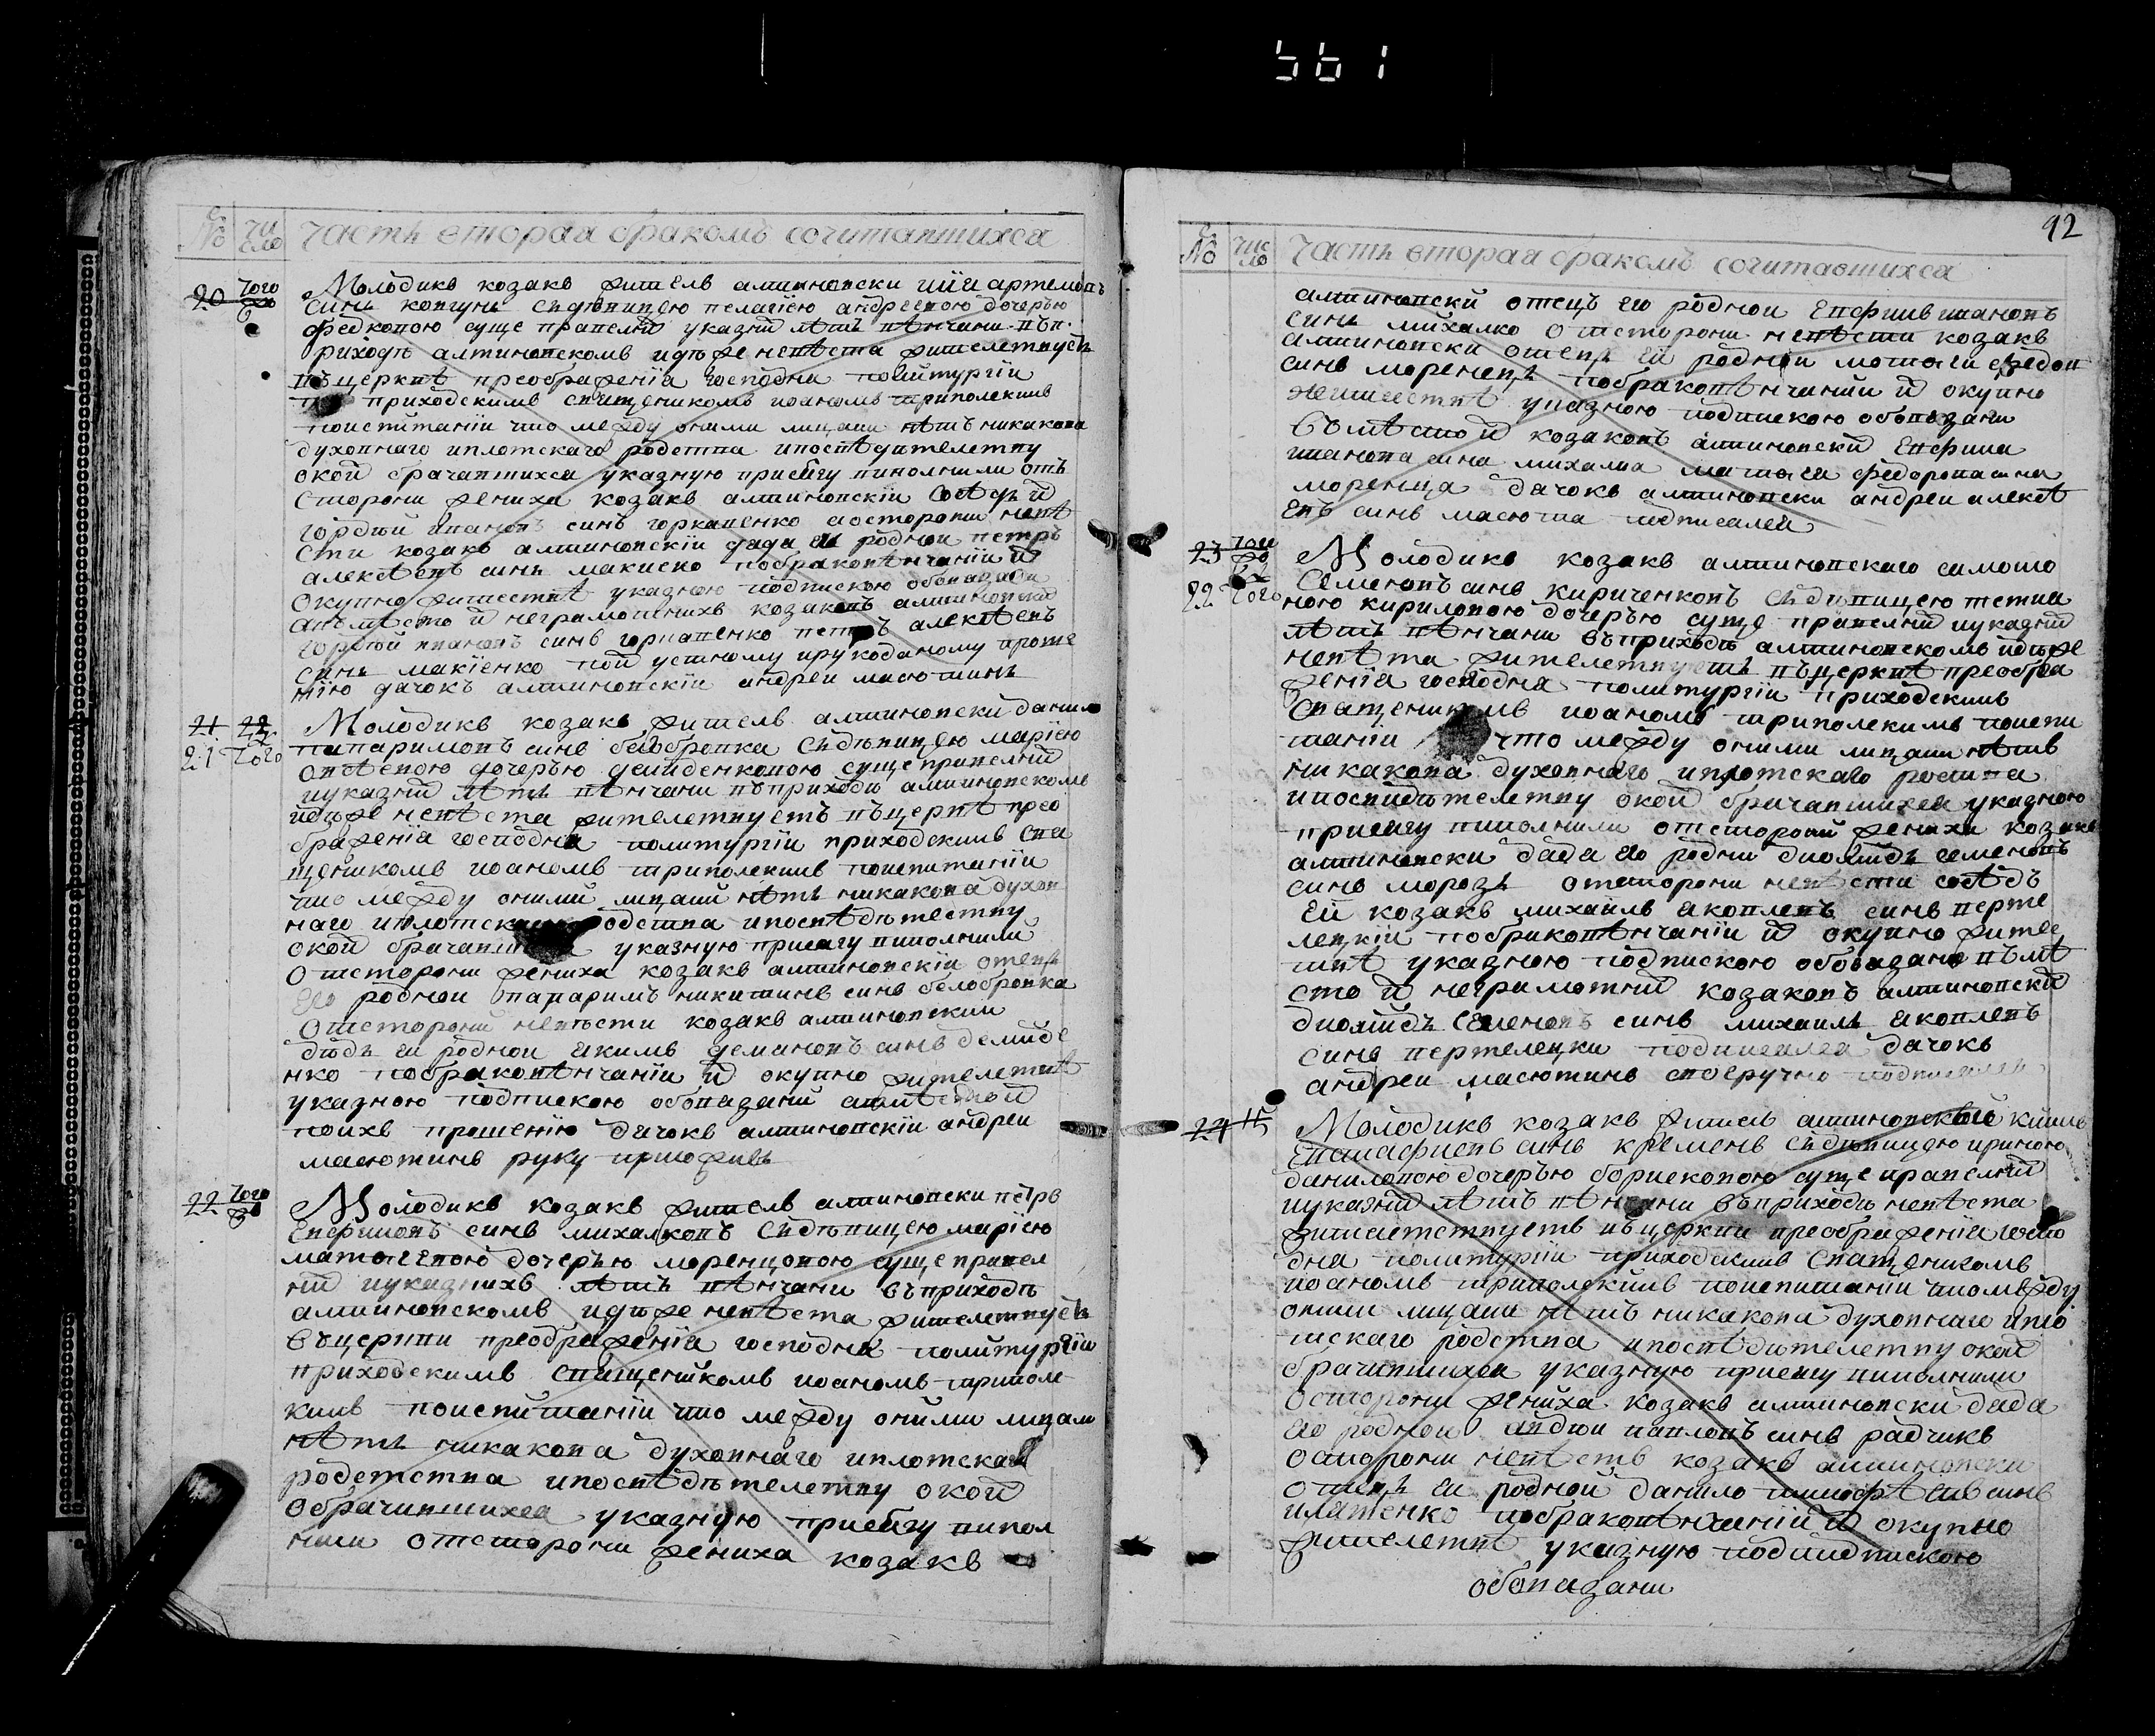 561
№ число Часть вторая бракомъ сочитавшихся
20 Того
Молодикъ козакъ житель алтиновски артемовъ
синъ ковгунъ съдѣвицею пелагіею андреевою дочерью
федковою суще правелнй указнй лѣтъ вѣнчани въп
риходѣ алтиновскомъ идѣже невѣста жителствуетъ
въцерквѣ преображенія господня полйтургіи
приходскимъ священикомъ иоаномъ триполскимъ
поиспитаніи что между оними лицами нѣтъ никакова
духовнаго иплотскаго родства ипосвѣдителству
окой брачавшихся указную присягу виполнили отъ
сторони жениха козакъ алтиновскій сосѣдъ й
гордѣй ивановъ синъ горкавенко состорони невѣ
сти козакъ алтиновскій дядя ея роднои петръ
алексѣевъ синъ макиенко побраковѣнчаніи й
окупножителствѣ указною подпискою обовязани
авмѣсто й неграмотнихъ козаковъ алтиновскй
гордѣй ивановъ синъ горкавенко петръ алексѣевъ
синъ макіенко пой устному ирукоданому проше
нію дячокъ алтиновскіи андреи масютинъ
21 22
21 Того
Молодикъ козакъ житель алтиновски данило
синъ белобровка съдѣвицею маріею
дочерью демиденковою суще правелнй
иуказнй лѣтъ вѣнчани въприходѣ алтиновскомъ
идѣже невѣста жителствуетъ въцерквѣ прео
браженія господня политургіи приходскимъ свя
щеникомъ иоаномъ триполскимъ поиспитаніи
что между оними лицами нѣтъ никакова духов
наго иплотскаго родства ипосвѣдителству
окой брачавшихся указную присягу виполнили
отсторони жениха козакъ алтиновскіи отецъ
его роднои никитинъ синъ белобровка
отсторони невѣсти козакъ алтиновскии
дѣдъ ея роднои якимъ демяновъ синъ демиде
нко побраковѣнчаніи й окупно жителствѣ
указною подпискою обовязани авмѣстой
поихъ прошенію дячокъ алтиновскіи андреи
масютинъ руку приложивъ
22 Того
Молодикъ козакъ житель алтиновски петръ
Евфимовъ синъ михалковъ съдѣвицею маріею
матвѣевою дочерью моренцовою суще правел
нй иуказнихъ лѣтъ вѣнчани въприходѣ
алтиновскомъ идѣже невѣста жителствуетъ
въцеркви преображенія господня политургіи
приходскимъ священикомъ иоаномъ триполс
кимъ поиспитаніи что между оними лицами
нѣтъ никакова духовнаго иплотскаго
родстства ипосвѣдѣтелству окой
обрачившихся указную присягу випол
нили отсторони жениха козакъ
92
№ число Часть вторая бракомъ сочитавшихся
алтиновскй отецъ его роднои Евфимъ ивановъ
синъ михалко отсторони невѣсти козакъ
алтиновски отецъ ей роднои матвѣй федоп
синъ моренецъ побраковѣнчаніи й окупно
жителствѣ указною подпискою обовязани
Въмѣстой козаковъ алтиновскй Евфима
иванова сина михалка матвѣя федорова сина
моренца дячокъ алтиновски андреи алексѣ
евъ синъ масюта подписался
23 Того
22 Того
Молодикъ козакъ алтиновскаго самойло
Семеновъ синъ кириченковъ съдѣвицею татия
ною кириловою дочерью суще правелнй иуказнй
лѣтъ вѣнчани въприходѣ алтиновскомъ идѣже
невѣста жителствуетъ въцерквѣ преобра
женія господня политургіи приходскимъ
священикомъ иоаномъ триполскимъ поиспи
таніи что между оними лицами нѣтъ
никакова духовнаго иплотскаго родства
ипосвидѣтелству окой брачавшихся указною
присягу виполнили отсторони жениха козакъ
алтиновски дядя его роднй диомидъ семеновъ
синъ морозъ отсторони невѣсти сосѣдъ
ей козакъ михаилъ яковлевъ синъ верте
лецкіи побраковѣнчаніи й окупно жителс
твѣ указною подпискою обовязани въмѣ
сто й неграмотнй козаковъ алтиновскй
диомидъ семеновъ синъ михаилъ яковлевъ
синъ вертелецки подписался дячокъ
андреи масютинъ своеручно подписался
24 15
Молодикъ козакъ житель алтиновской
синъ кременъ съдѣвицею ириною
даниловою дочерью борисковою суще правелнй
иуказнй лѣтъ вѣнчани въприходѣ невѣста
жителстствуетъ въцеркви преображенія госпо
дня политургіи приходскимъ священикомъ
иоаномъ триполскимъ поиспитаніи чтомежду
оними лицами нѣтъ никакова духовнаго ипло
тскаго родства ипосвѣдителству окой
брачившихся указную присягу виполнили
осторони жениха козакъ алтиновски дядя
его роднои авдѣй павловъ синъ радчикъ
осторони невѣстъ козакъ алтиновски
отецъ ея роднои данило тимофѣевъ синъ
илятенко побраковѣнчаніи й окупно
жителствѣ указную подпидпискою
обовязани